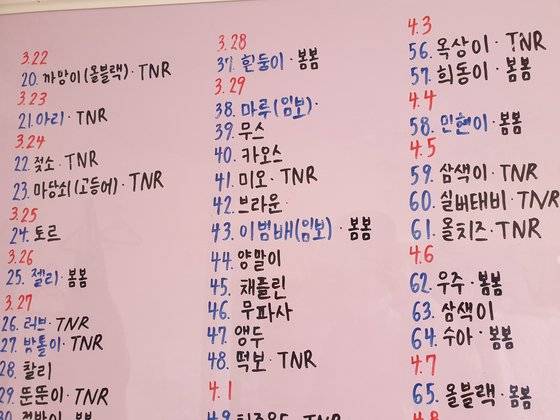 3.22
20. 까망이(올블랙)·TNR
3.23
21. 아리·TNR
3.24
22. 젖소·TNR
23. 마당쇠(고등어)·TNR
3.25
24. 토르
3.26
25. 젤리·봄봄
3.27
26. 러브·TNR
27. 밤톨이·TNR
28. 찰리
29. 뚠뚠이·TNR
3.28
37. 흰둥이·봄봄
3.29
38. 마루(임보)·
39. 무스
40. 카오스
41. 미오·TNR
42. 브라운
43. 이범배(임보)·봄봄
44. 양말이
45. 채플린
46. 무파사
47. 앵두
48. 떡보·TNR
4.1
4.3
56. 옥상이·TNR
57. 희동이·봄봄
4.4
58. 민현이·봄봄
4.5
59. 삼색이·TNR
60. 실버태비·TNR
61. 올치즈·TNR
4.6
62. 우주·봄봄
63. 삼색이
64. 수아·봄봄
4.7
65. 올블랙·봄봄
4.8